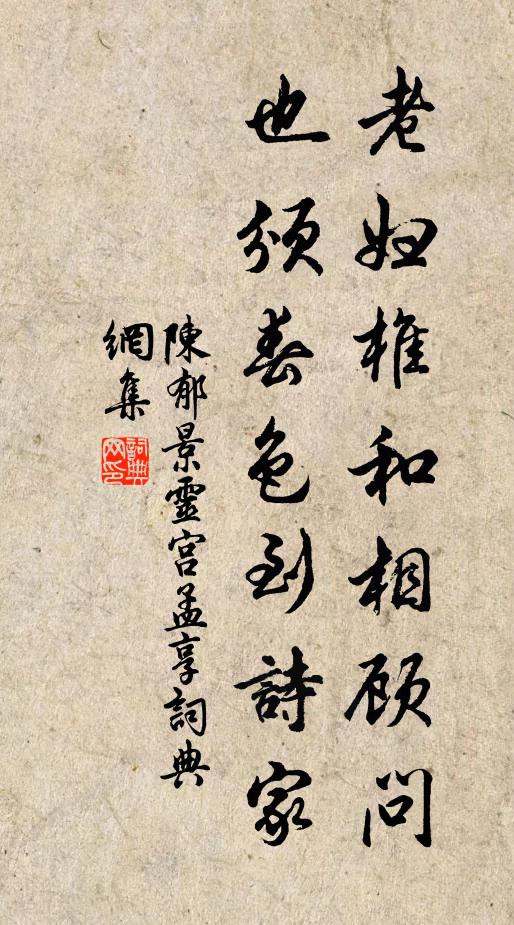 老妇椎和相顾问
也頒春色到詩家
陳郁景靈宮孟享詞典
網集
詞典
网印